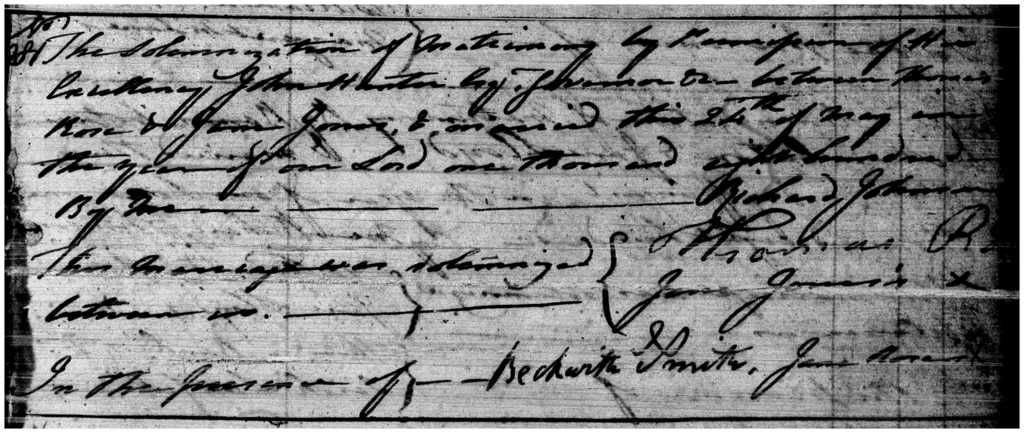 No
381 The Solemnization of Matrimony by Permission of His
Excellency John Hunter Esqr. Governor &c between Thomas
Rose & Jane Jones, & married this 24th of May in
the year of our Lord one thousand eight hundred
By Me Richard Johnson
This Marriage was solemnized Thomas Ro
between us. Jane Jones's x
In the presence of Beckwith Smith, Jane